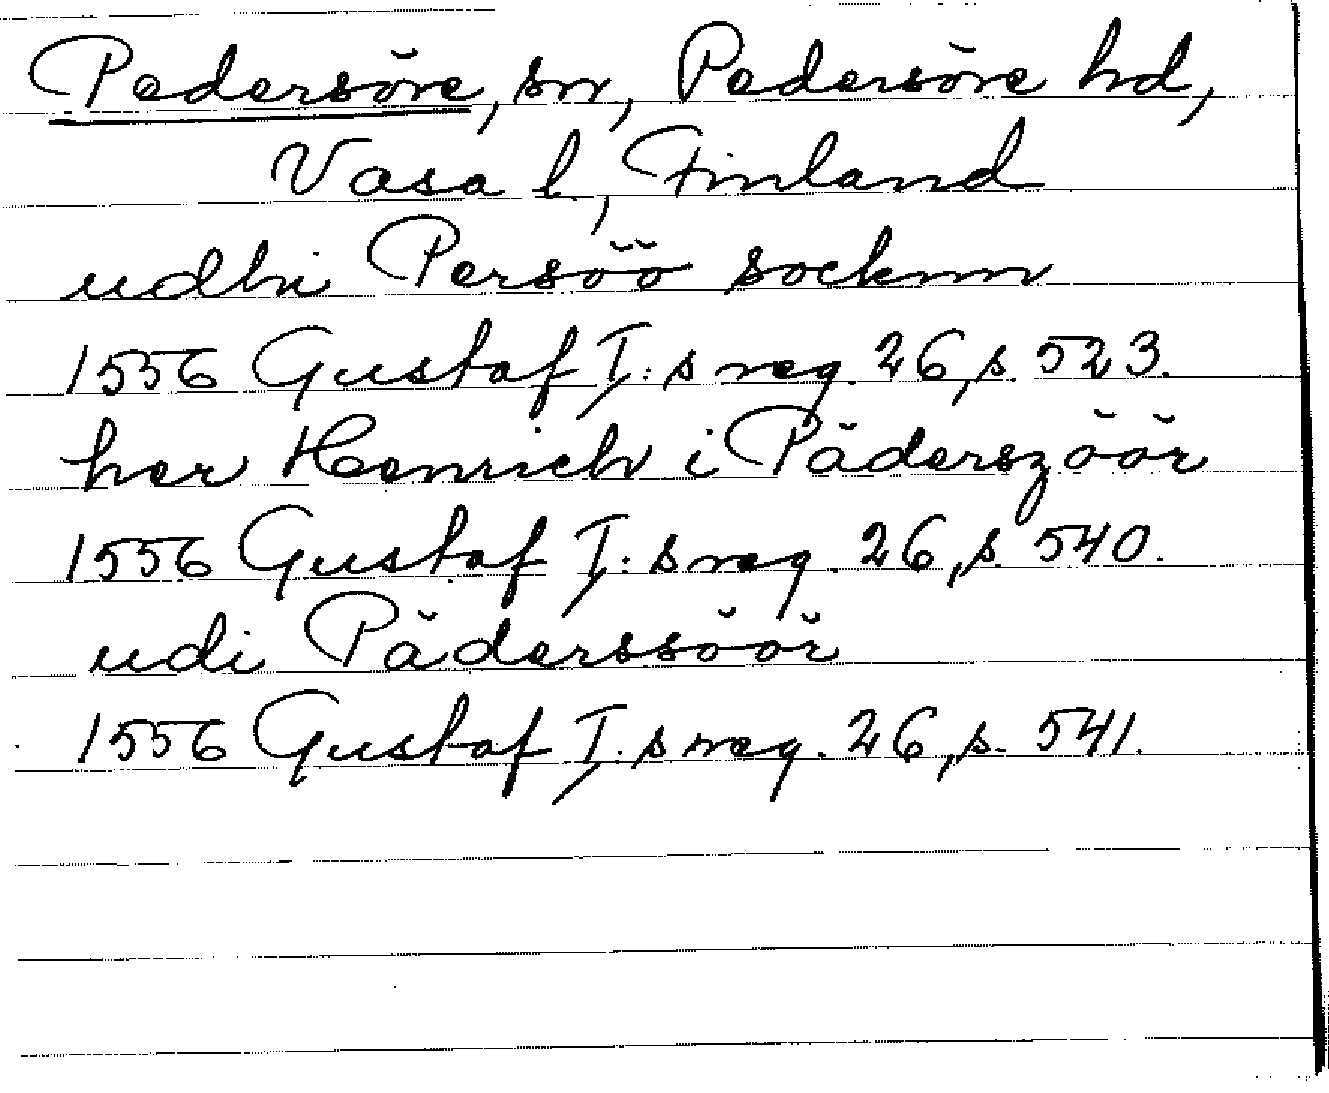 Pedersöre, sn, Pedersöre hd,
Vasa l, Finland
udhi Persöö socknn
1556 Gustaf I:s reg. 26, s. 523.
her Henrich i Päderszöör
1556 Gustaf I:s reg. 26, s. 540.
udi Päderssöör
1556 Gustaf I:s reg. 26, s. 541.